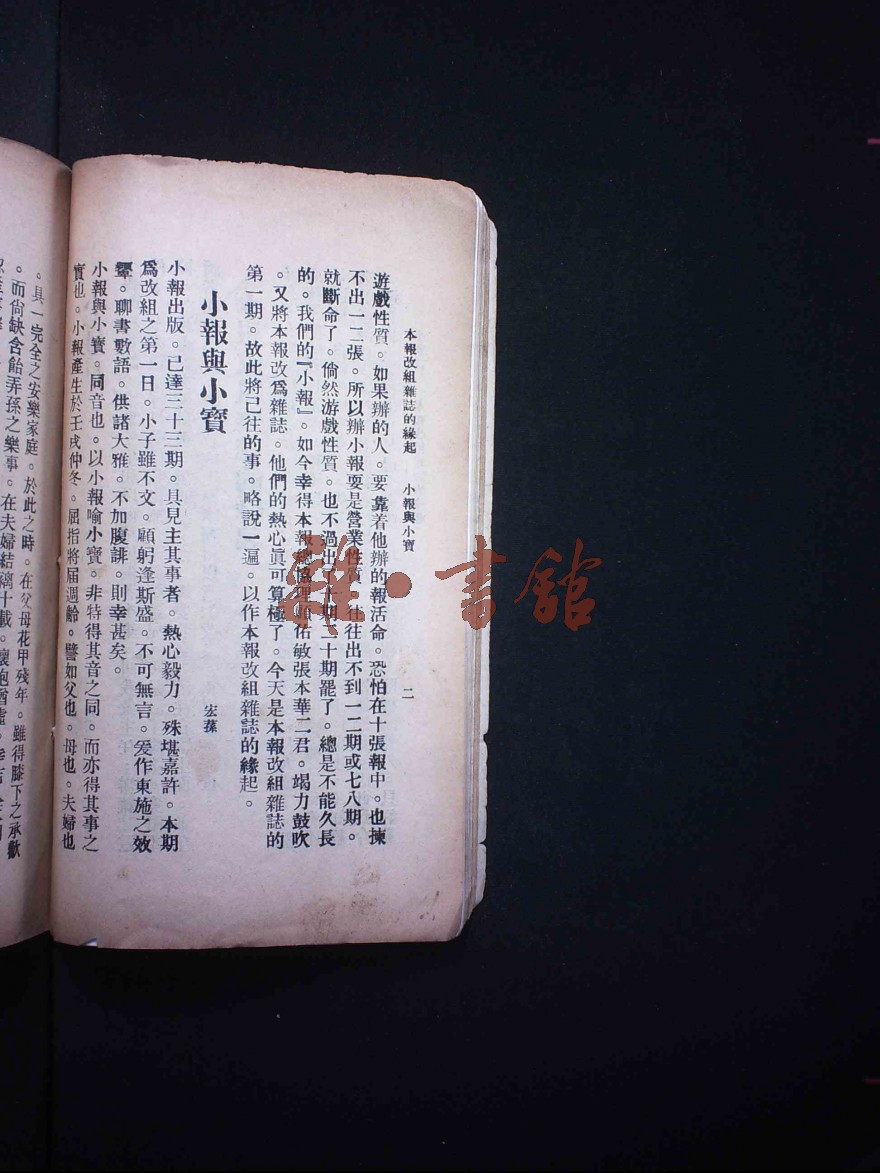 本報改組雜誌的緣起　小報與小寶　二
遊戲性質。如果辦的人。要靠着他辦的報活命。恐怕在十張報中。也揀
不出一二張。所以辦小報要是營業性質。往往出不到一二期或七八期。
就斷命了。倘然游戲性質。也不過出了十期二十期罷了。總是不能久長
的。我們的『小報』。如今幸得本報總協理顧佑敏張本華二君。竭力鼓吹
。又將本報改爲雜誌。他們的熱心眞可算極了。今天是本報改組雜誌的
第一期。故此將已往的事。略說一遍。以作本報改組雜誌的緣起。
小報與小寶
宏藻
小報出版。已達三十三期。具見主其事者。熱心毅力。殊堪嘉許。本期
爲改組之第一日。小子雖不文。顧躬逢斯盛。不可無言。爰作東施之效
顰。聊書數語。供諸大雅。不加腹誹。則幸甚矣。
小報與小寶。同音也。以小報喻小寶。非特得其音之同。而亦得其事之
實也。小報產生於壬戌仲冬。屈指將屆週齡。譬如父也。母也。夫婦也
。具一完全之安樂家庭。於此之時。在父母花甲殘年。雖得膝下之承歡
。而尙缺含飴弄孫之樂事。在夫婦結褵十載。
雜·書館